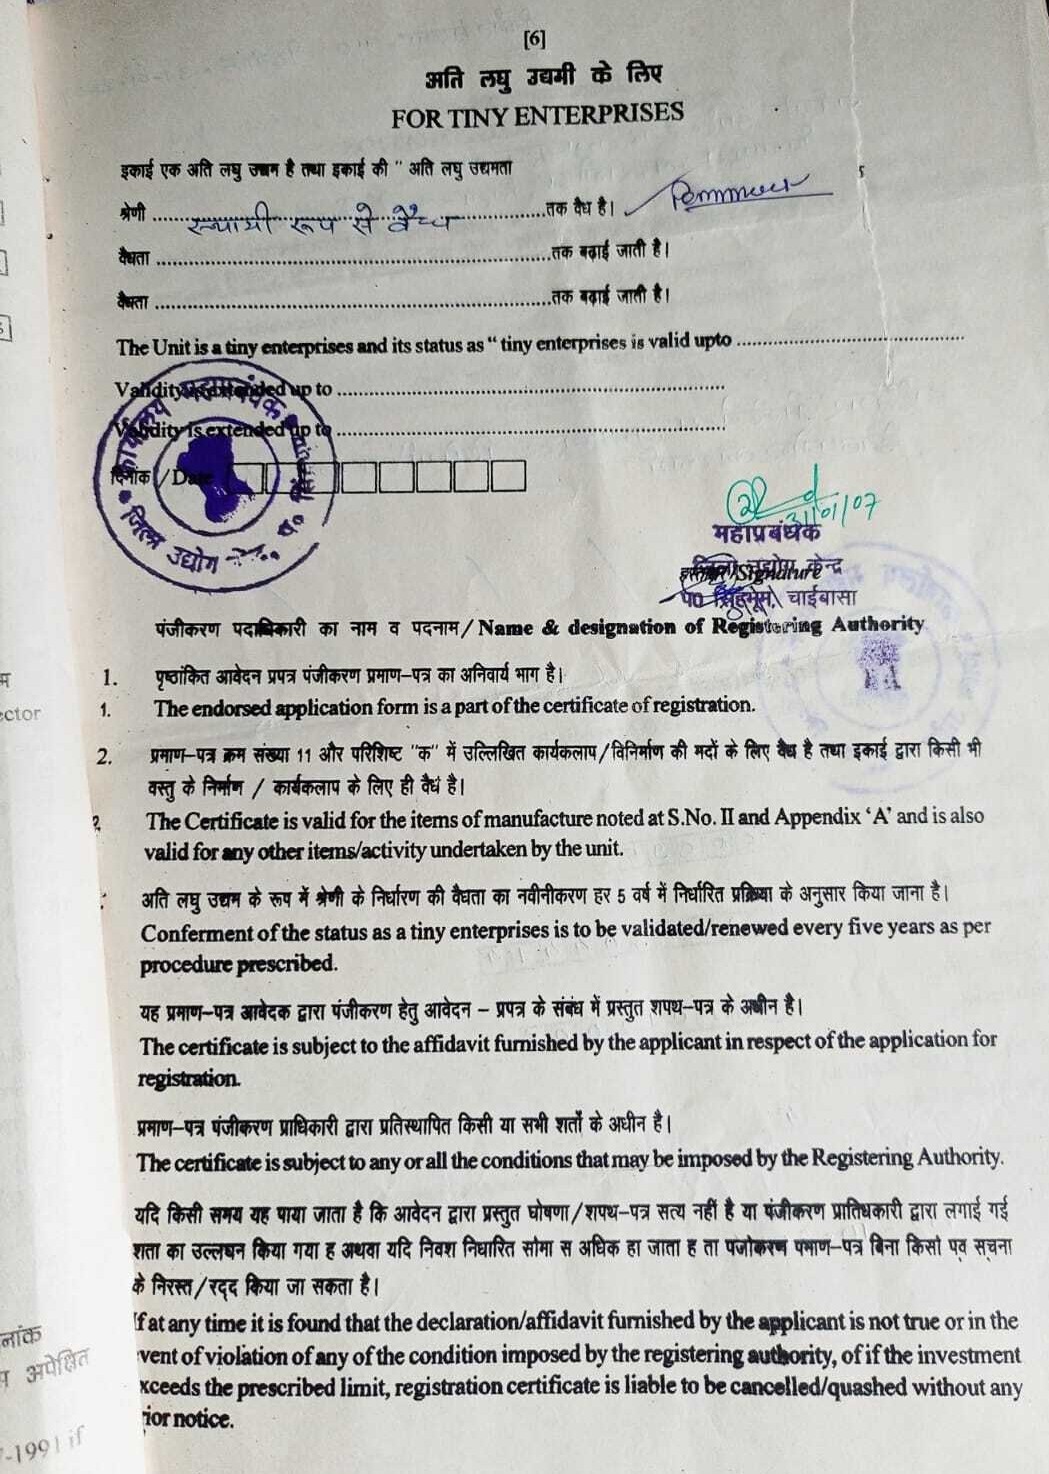 [6]
अति लघु उद्यमी के लिए
FOR TINY ENTERPRISES
इकाई एक अति लघु उद्यम है तथा इकाई की " अति लघु उद्यमता
श्रेणी ........ स्थायी रूप से वैध ........ तक वैध है। Permanent
वैधता ........ तक बढ़ाई जाती है।
वैधता ........ तक बढ़ाई जाती है।
The Unit is a tiny enterprises and its status as " tiny enterprises is valid upto ........
Validity is extended up to ........
Validity is extended up to ........
दिनांक / Date
कार्यालय महाप्रबंधक
जिला उद्योग
31/01/07
महाप्रबंधक
जिला उद्योग केन्द्र
हस्ताक्षर/Signature
प0 सिंहभूम, चाईबासा
पंजीकरण पदाधिकारी का नाम व पदनाम/Name & designation of Registering Authority
1. पृष्ठांकित आवेदन प्रपत्र पंजीकरण प्रमाण-पत्र का अनिवार्य भाग है।
1. The endorsed application form is a part of the certificate of registration.
2. प्रमाण-पत्र क्रम संख्या 11 और परिशिष्ट "क" में उल्लिखित कार्यकलाप/विनिर्माण की मदों के लिए वैध है तथा इकाई द्वारा किसी भी
वस्तु के निर्माण / कार्यकलाप के लिए ही वैध है।
2. The Certificate is valid for the items of manufacture noted at S.No. II and Appendix ‘A’ and is also
valid for any other items/activity undertaken by the unit.
अति लघु उद्यम के रूप में श्रेणी के निर्धारण की वैधता का नवीनीकरण हर 5 वर्ष में निर्धारित प्रक्रिया के अनुसार किया जाना है।
Conferment of the status as a tiny enterprises is to be validated/renewed every five years as per
procedure prescribed.
यह प्रमाण-पत्र आवेदक द्वारा पंजीकरण हेतु आवेदन – प्रपत्र के संबंध में प्रस्तुत शपथ-पत्र के अधीन है।
The certificate is subject to the affidavit furnished by the applicant in respect of the application for
registration.
प्रमाण-पत्र पंजीकरण प्राधिकारी द्वारा प्रतिस्थापित किसी या सभी शर्तों के अधीन है।
The certificate is subject to any or all the conditions that may be imposed by the Registering Authority.
यदि किसी समय यह पाया जाता है कि आवेदन द्वारा प्रस्तुत घोषणा/शपथ-पत्र सत्य नहीं है या पंजीकरण प्रातिधकारी द्वारा लगाई गई
शता का उल्लघन किया गया ह अथवा यदि निवश निधारित सीमा स अधिक हा जाता ह ता पजीकरण पमाण-पत्र बिना किसी पव सचना
के निरस्त/रद्द किया जा सकता है।
If at any time it is found that the declaration/affidavit furnished by the applicant is not true or in the
vent of violation of any of the condition imposed by the registering authority, of if the investment
xceeds the prescribed limit, registration certificate is liable to be cancelled/quashed without any
rior notice.
ector
नांक
अपेक्षित
-1991 if